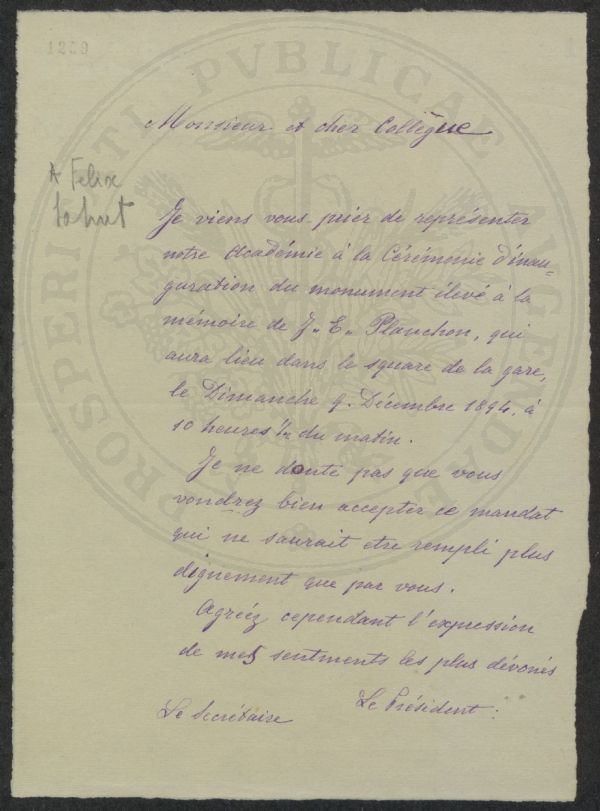 1259
PROSPERITATI PVBLICAE AVGENDAE
Monsieur et cher Collègue
A Felix
Sahut
Je viens vous prier de représenter
notre Académie à la Cérémonie d'inau-
guration du monument élevé à la
mémoire de J. E. Planchon, qui
aura lieu dans le square de la gare,
le Dimanche 9 Décembre 1894, à
10 heures 1/2 du matin.
Je ne doute pas que vous
voudrez bien accepter ce mandat
qui ne saurait etre rempli plus
dignement que par vous.
Agréez cependant l'expression
de mes sentiments les plus dévoués
Le Président.
Le Secrétaire